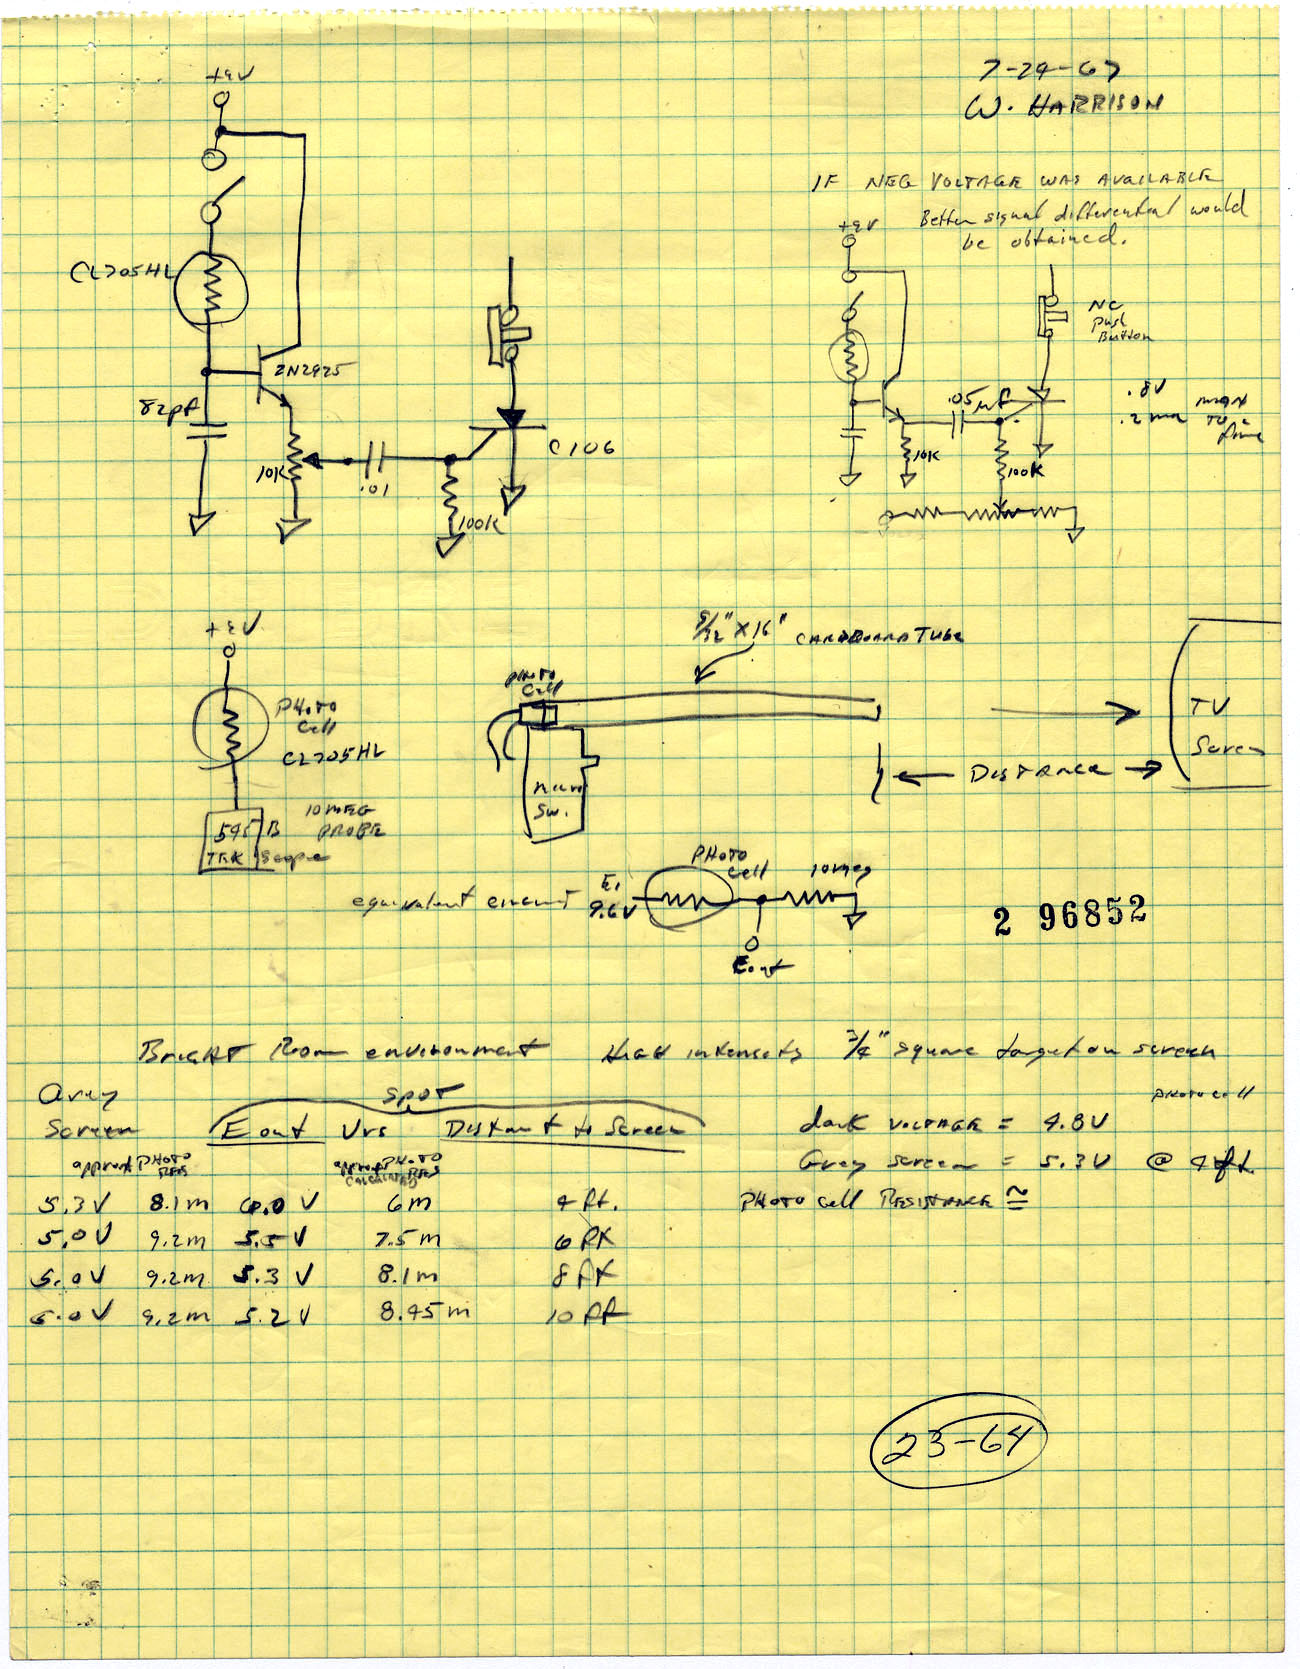 7-24-67
W. HARRISON
+9V
CL705HL
2N2925
82pf
10K
.01
100K
C106
IF NEG VOLTAGE WAS AVAILABLE
Better signal differential would
be obtained.
+9V
NC
Push
Button
.05µf
10K
100K
.8V max
.2 ma
+9V
PHOTO
Cell
CL705HL
10 MEG
PROBE
545 B
TEK Scope
5/32" X 16" CARDBOARD TUBE
PHOTO
Cell
Sw.
TV
Screen
DISTANCE
equivalent circuit
E1
9.6V
PHOTO
Cell
10meg
Eout
2 96852
Bright Room environment High intensety 3/4" square target on screen
Grey
Screen
spot
Eout Vrs Distant to Screen
approx PHOTO
RES
approx PHOTO
CALCULATED RES
5.3V 8.1m 6.0V 6m 4 ft.
5.0V 9.2m 5.5V 7.5m 6 ft
5.0V 9.2m 5.3V 8.1m 8 ft
5.0V 9.2m 5.2V 8.45m 10 ft
photocell
dark voltage = 4.8V
Grey screen = 5.3V @ 4 ft
PHOTO cell RESISTANCE ≅
23-64